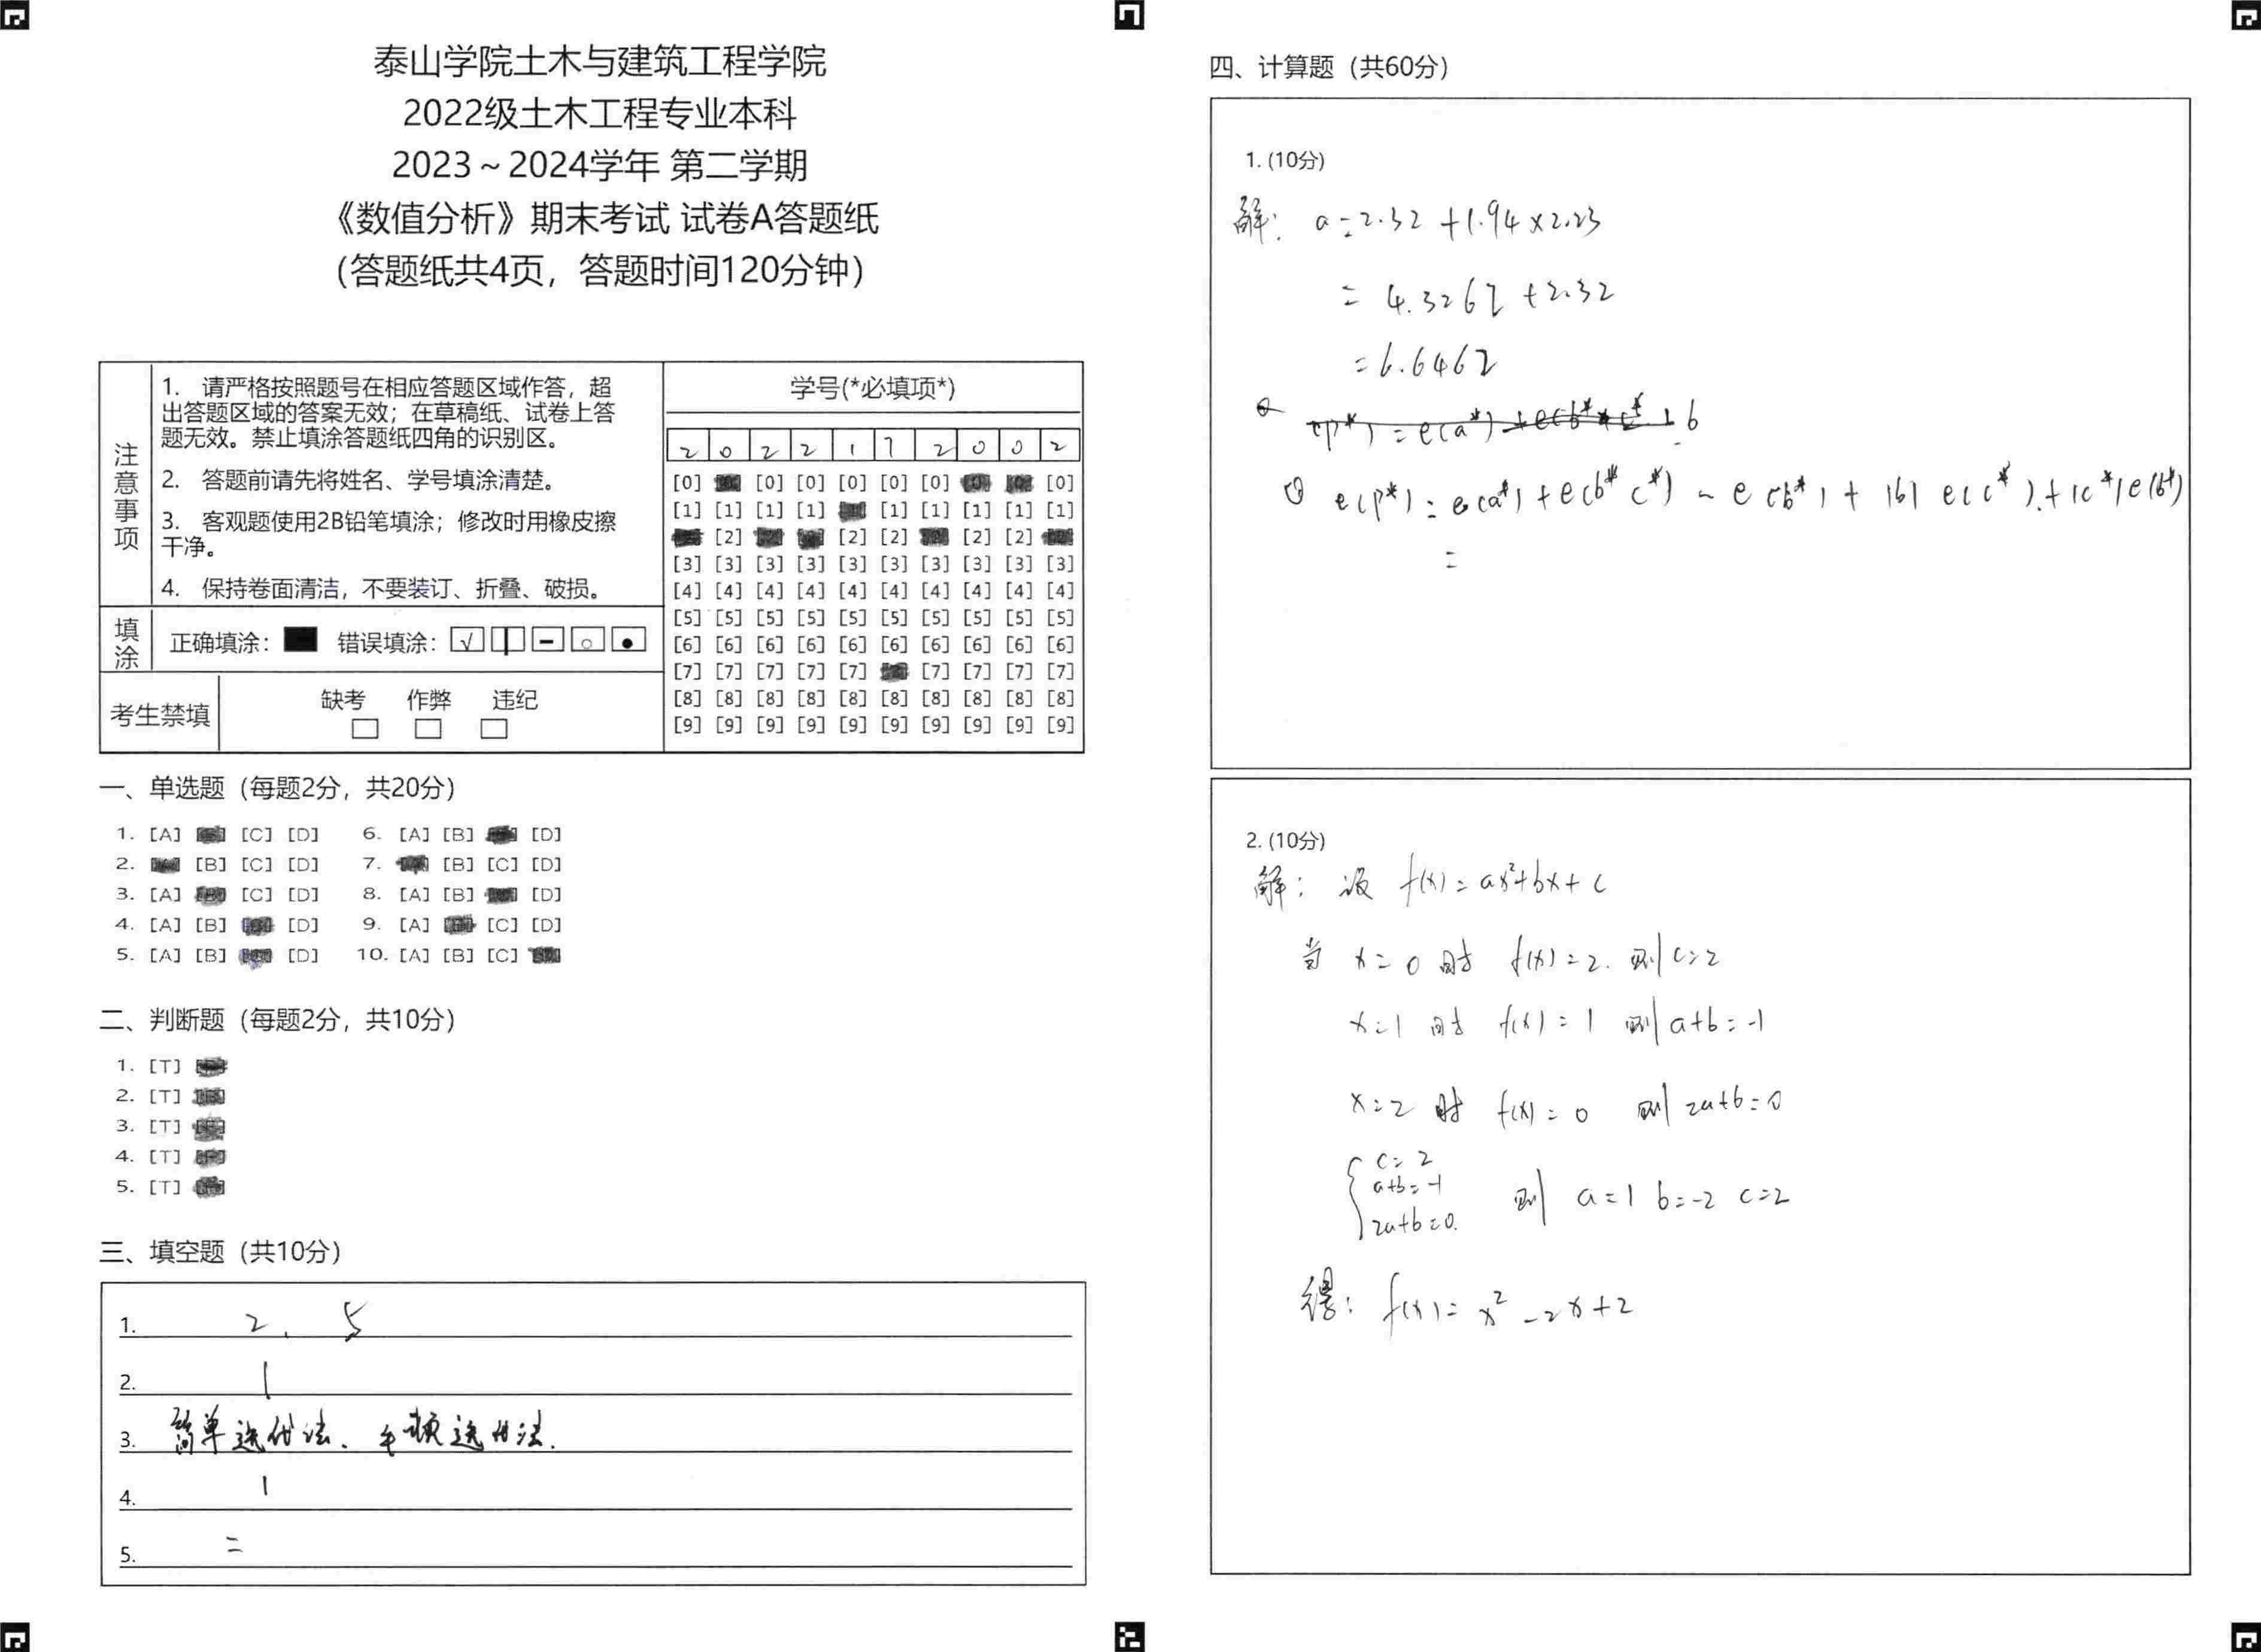 泰山学院土木与建筑工程学院
2022级土木工程专业本科
2023～2024学年 第二学期
《数值分析》期末考试 试卷A答题纸
（答题纸共4页，答题时间120分钟）
注意事项
1. 请严格按照题号在相应答题区域作答，超
出答题区域的答案无效；在草稿纸、试卷上答
题无效。禁止填涂答题纸四角的识别区。
2. 答题前请先将姓名、学号填涂清楚。
3. 客观题使用2B铅笔填涂；修改时用橡皮擦
干净。
4. 保持卷面清洁，不要装订、折叠、破损。
填涂
正确填涂： 错误填涂： √
考生禁填
缺考 作弊 违纪
学号(*必填项*)
2 0 2 2 1 7 2 0 0 2
[0] [0] [0] [0] [0] [0] [0]
[1] [1] [1] [1] [1] [1] [1] [1] [1]
[2] [2] [2] [2] [2]
[3] [3] [3] [3] [3] [3] [3] [3] [3] [3]
[4] [4] [4] [4] [4] [4] [4] [4] [4] [4]
[5] [5] [5] [5] [5] [5] [5] [5] [5] [5]
[6] [6] [6] [6] [6] [6] [6] [6] [6] [6]
[7] [7] [7] [7] [7] [7] [7] [7] [7]
[8] [8] [8] [8] [8] [8] [8] [8] [8] [8]
[9] [9] [9] [9] [9] [9] [9] [9] [9] [9]
一、单选题（每题2分，共20分）
1. [A] [C] [D] 6. [A] [B] [D]
2. [B] [C] [D] 7. [B] [C] [D]
3. [A] [C] [D] 8. [A] [B] [D]
4. [A] [B] [D] 9. [A] [C] [D]
5. [A] [B] [D] 10. [A] [B] [C]
二、判断题（每题2分，共10分）
1. [T]
2. [T]
3. [T]
4. [T]
5. [T]
三、填空题（共10分）
1. 2, 5
2. 1
3. 简单迭代法、牛顿迭代法.
4. 1
5. =
四、计算题（共60分）
1. (10分)
解： a=2.32+1.94×2.23
= 4.3262+2.32
=6.6462
e(p*) = e(a*)+e(b* c*) ~ e(b*) + |b| e(c*)+|c*|e(b*)
=
2. (10分)
解： 设 f(x)=ax²+bx+c
当 x=0 时 f(x)=2. 则 c=2
x=1 时 f(x)=1 则 a+b=-1
x=2 时 f(x)=0 则 2a+b=0
c=2
a+b=-1
2a+b=0. 则 a=1 b=-2 c=2
得： f(x)= x²-2x+2